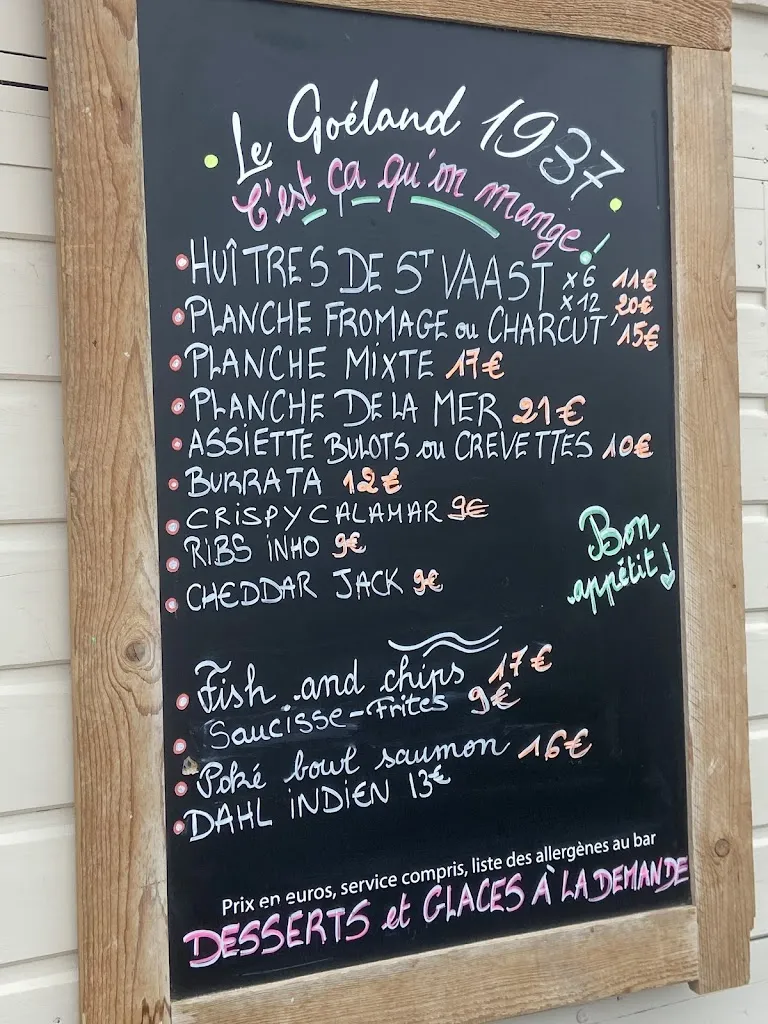 Le Goéland 1937
C'est ça qu'on mange !
HUÎTRES DE ST VAAST x6 11€
x12 20€
PLANCHE FROMAGE ou CHARCUT' 15€
PLANCHE MIXTE 17€
PLANCHE DE LA MER 21€
ASSIETTE BULOTS ou CREVETTES 10€
BURRATA 12€
CRISPY CALAMAR 9€
RIBS INHO 9€
CHEDDAR JACK 9€
Bon
appétit !
Fish and chips 17€
Saucisse-Frites 9€
Poké bowl saumon 16€
DAHL INDIEN 13€
Prix en euros, service compris, liste des allergènes au bar
DESSERTS et GLACES À LA DEMANDE